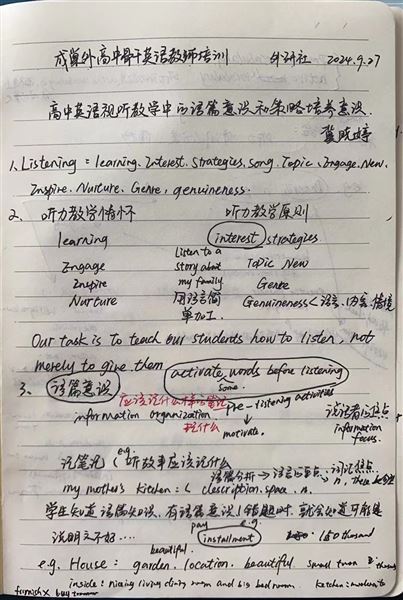 成单外高中骨干英语教师培训 外研社 2024.9.27
高中英语视听教学中的语篇意识和策略培养意识.
冀晓婷
1. Listening = learning. Interest. Strategies. Song. Topic. Engage. New.
Inspire. Nurture. Genre, genuineness.
2. 听力教学情怀 听力教学原则
learning Listen to a interest strategies
Engage story about Topic New
Inspire my family Genre
Nurture 用语言简单加工. Genuineness < 语言、内容、情境
Our task is to teach our students how to listen, not
merely to give them activate some words before listening
3. 语篇意识 应该记什么样的笔记 pre-listening activities 说话者的焦点
information organization 找什么 motivate. information focus.
记笔记 (e.g. 听故事应该记什么
语篇分析 → 语言的重点、词汇焦点
my mother's kitchen: < description. space. n. → n, there be
学生知道语篇知识、有语篇意识,做题时, 就会知道可能是
pay e.g.
说明文不好… installment 150 thousand
beautiful.
e.g. House: garden. location. beautiful. small town
inside: living dining room and big bedroom kitchen:
furnish×